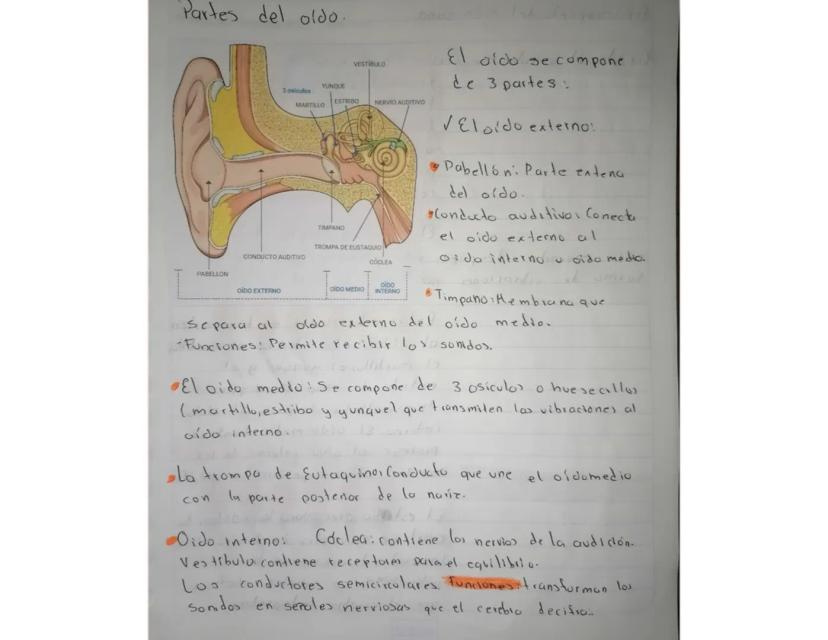 Partes del oído.
VESTÍBULO
3 osículos
YUNQUE
MARTILLO
ESTRIBO
NERVIO AUDITIVO
TÍMPANO
TROMPA DE EUSTAQUIO
CONDUCTO AUDITIVO
CÓCLEA
PABELLON
OÍDO EXTERNO
OÍDO MEDIO
OÍDO INTERNO
El oído se compone
de 3 partes:
✓ El oído externo:
Pabellón: Parte extena
del oído.
Conducto auditivo: Conecta
el oído externo al
oído interno u oído medio.
Timpano: Membrana que
separa al oído externo del oído medio.
-Funciones: Permite recibir los sonidos.
El oido medio: Se compone de 3 osículos o huesecillos
(martillo, estribo y yunque) que transmiten las vibraciones al
oído interno.
La trompa de Eutaquino: Conducto que une el oídomedio
con la parte posterior de la nariz.
Oido interno: Cóclea: contiene los nervios de la audición.
Vestíbulo contiene receptores para el equilibrio.
Los conductores semicirculares. Funciones: transforman los
sonidos en señales nerviosas que el cerebro decifra..